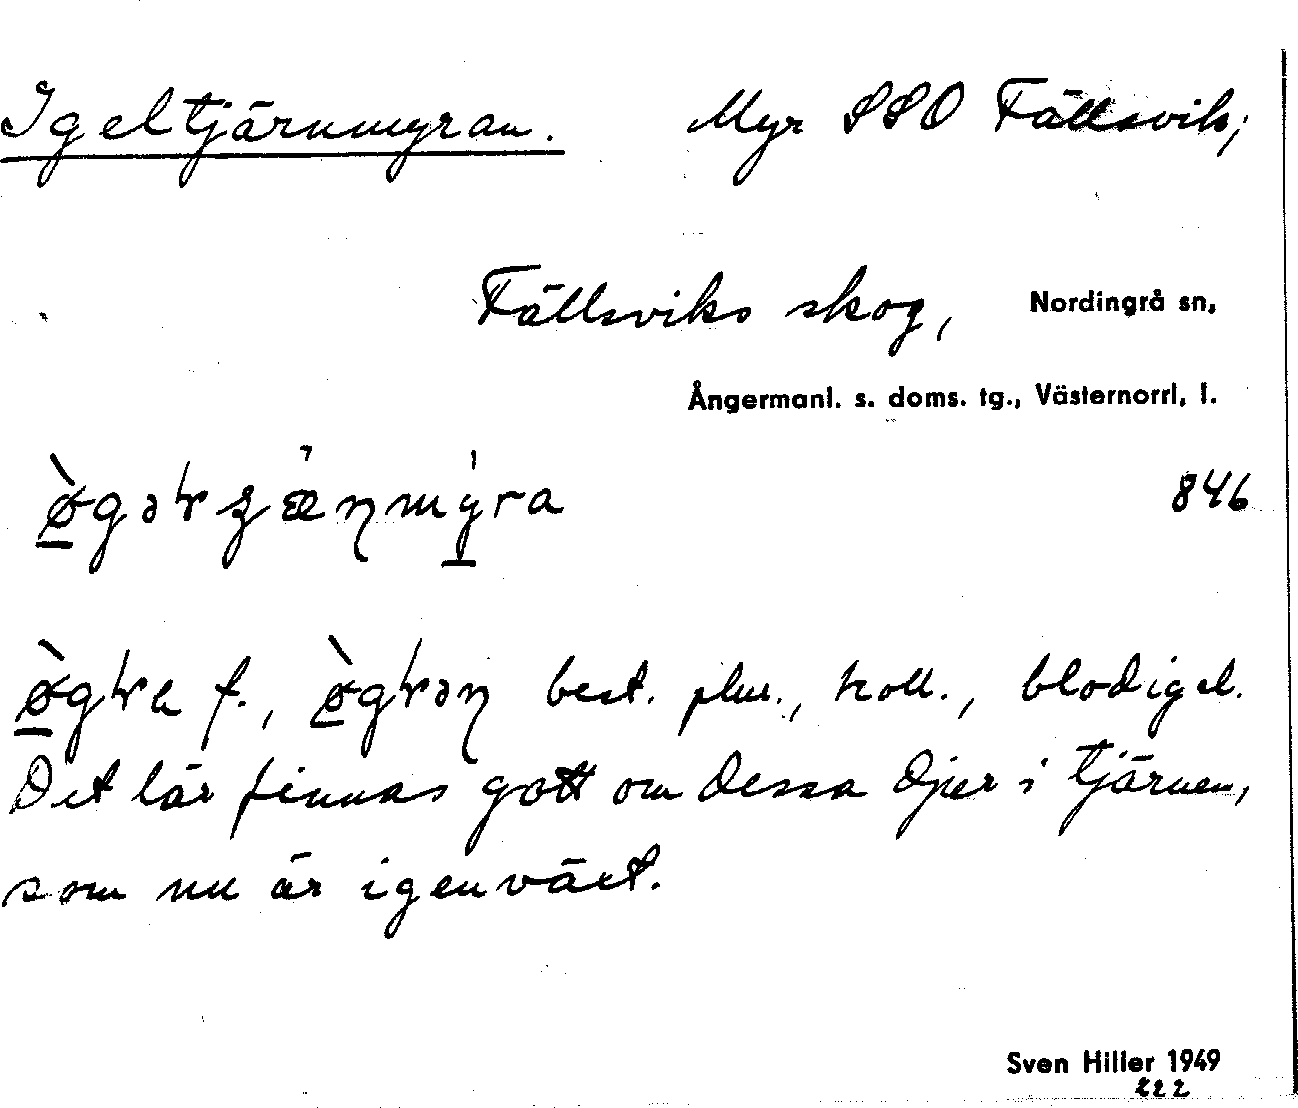 Igeltjärnmyran. Myr SSO Fällsvik;
Fällsviks skog, Nordingrå sn,
Ångermanl. s. doms. tg., Västernorrl. l.
846
f., best. plur., koll., blodigel.
Det lär finnas gott om dessa djur i tjärnen,
som nu är igenväxt.
Sven Hiller 1949